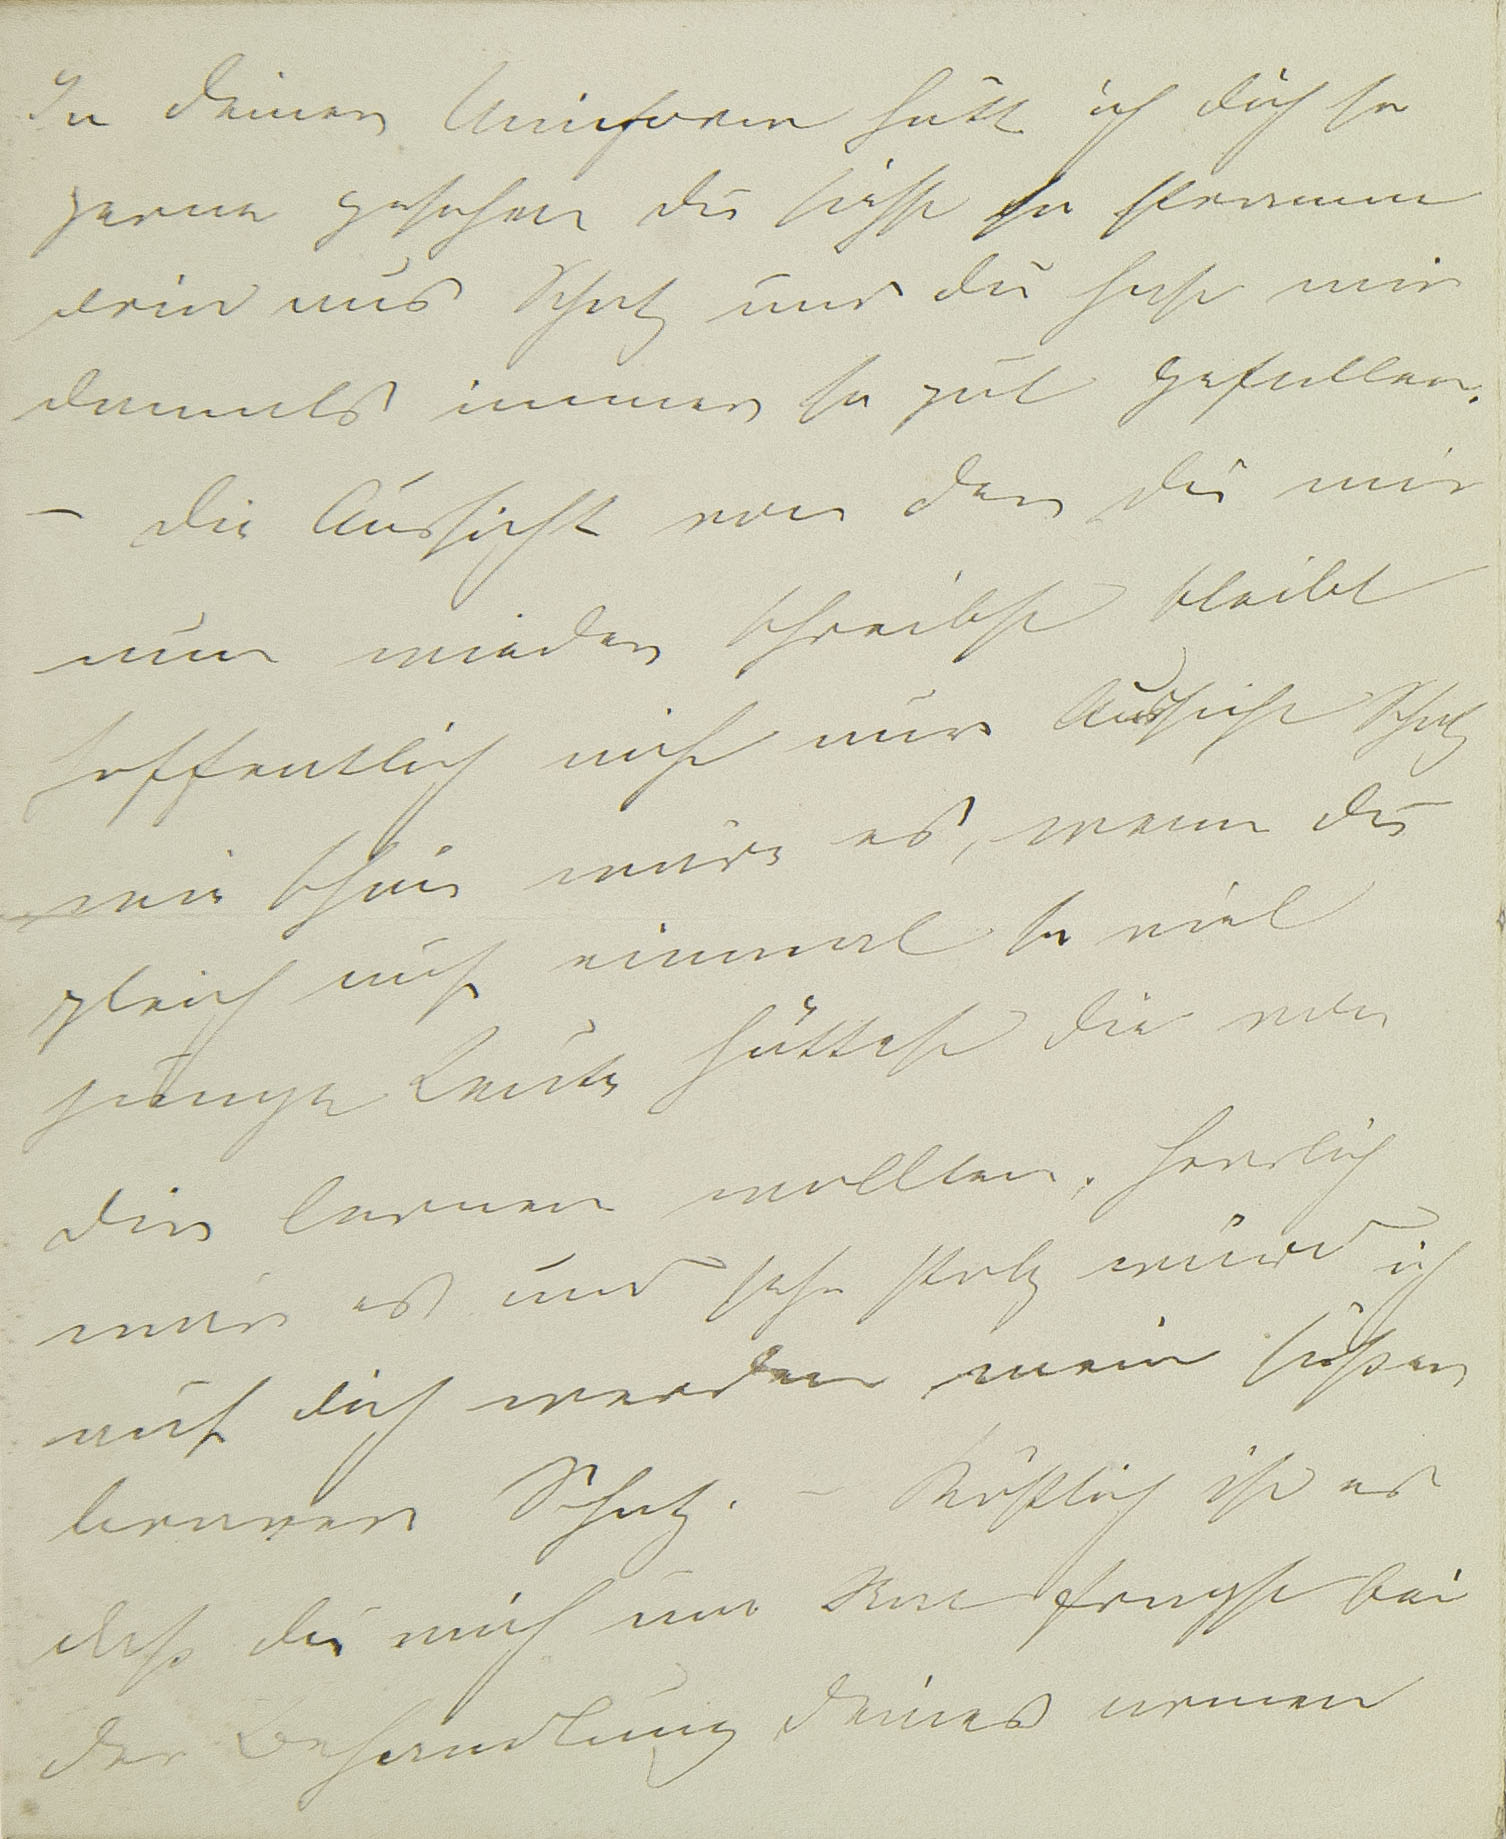 In deiner Uniform hätt ich dich so
gerne gesehen du siehst so stramm
drin aus Schatz und du hast mir
damals immer so gut gefallen.
– Die Aussicht von der du mir
nun wieder schreibst bleibt
hoffentlich nicht nur Aussicht Schatz
wie schön wäre es, wenn du
gleich auf einmal so viel
junge Leute hättest die von
dir lernen wollten. Herrlich
wär es und sehr stolz würd ich
auf dich werden mein süßer
braver Schatz. – Köstlich ist es
daß du mich um Rat fragst bei
der Behandlung deines armen